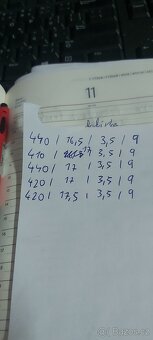 11
440 / 16,5 / 3,5 / 9
410 / 17 / 3,5 / 9
440 / 17 / 3,5 / 9
420 / 17 / 3,5 / 9
420 / 17,5 / 3,5 / 9
Bazoš.cz